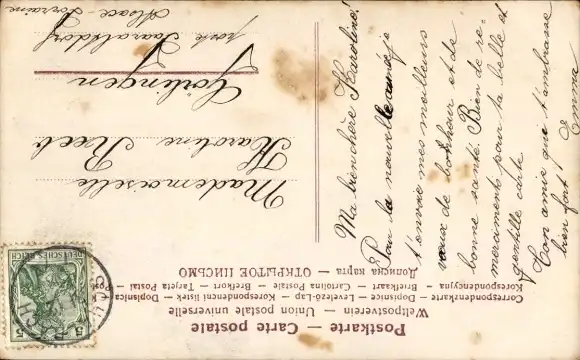 Postkarte — Carte postale
Weltpostverein — Union postale universelle
Correspondenzkarte — Dopisnice — Levelező-Lap — Korespondencni lístek — Dopisnica —
Korespondencyjna — Briefkaart — Cartolina Postale — Brefkort — Tarjeta Postal —
Дописна карта — ОТКРЫТОЕ ПИСЬМО
DEUTSCHES REICH
5
5
Mademoiselle
Karoline Reeb
Görlingen
poste Saaraltdorf
Alsace-Lorraine
Ma bien chère Karoline!
Pour la nouvelle année je
t'envoie mes meilleurs
vœux de bonheur et de
bonne santé. Bien de re-
merciments pour ta belle et
gentille carte.
Ton amie que t'embrasse
bien fort! Emma